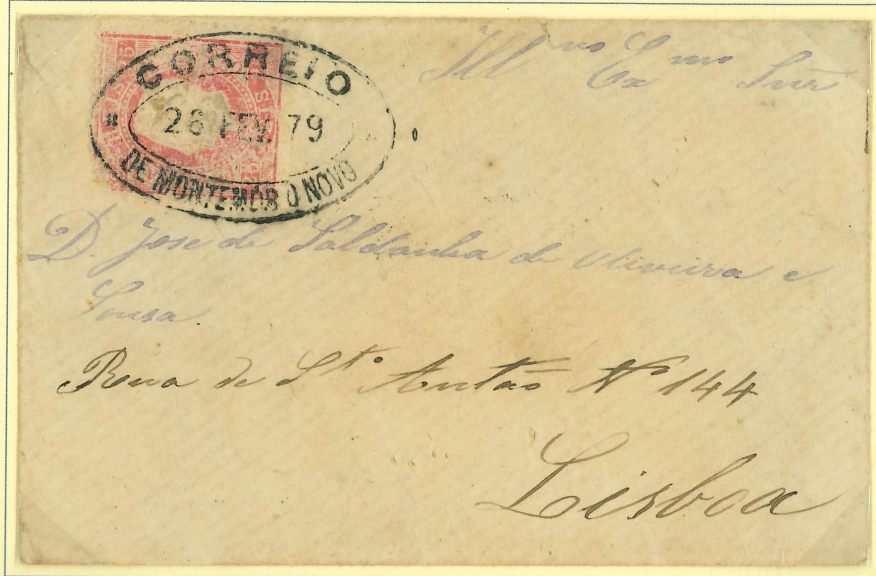 CORREIO
26 FEV. 79
DE MONTEMOR O NOVO
Ill^mo Ex^mo Snr
D. Jose de Saldanha de Oliveira e
Sousa
Rua de S^to Antão N^o 144
Lisboa